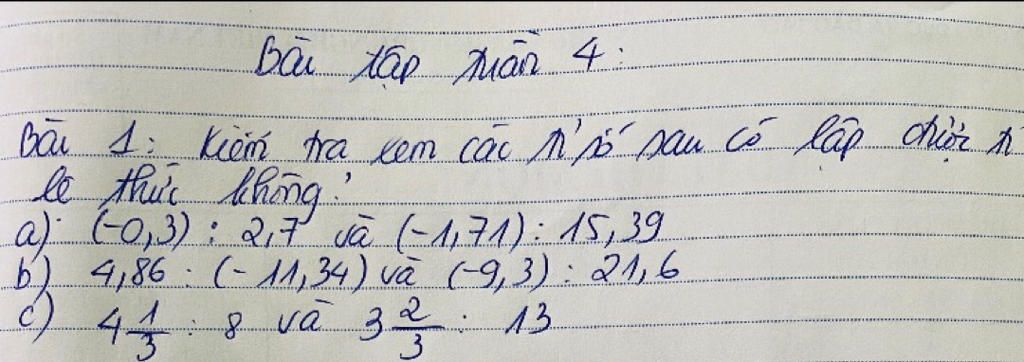 Bài tập tuần 4:
Bài 1: Kiểm tra xem các tỉ số sau có lập được tỉ
lệ thức không?
a) (-0,3) : 2,7 và (-1,71) : 15,39
b) 4,86 : (-11,34) và (-9,3) : 21,6
c) 4 1/3 : 8 và 3 2/3 : 13